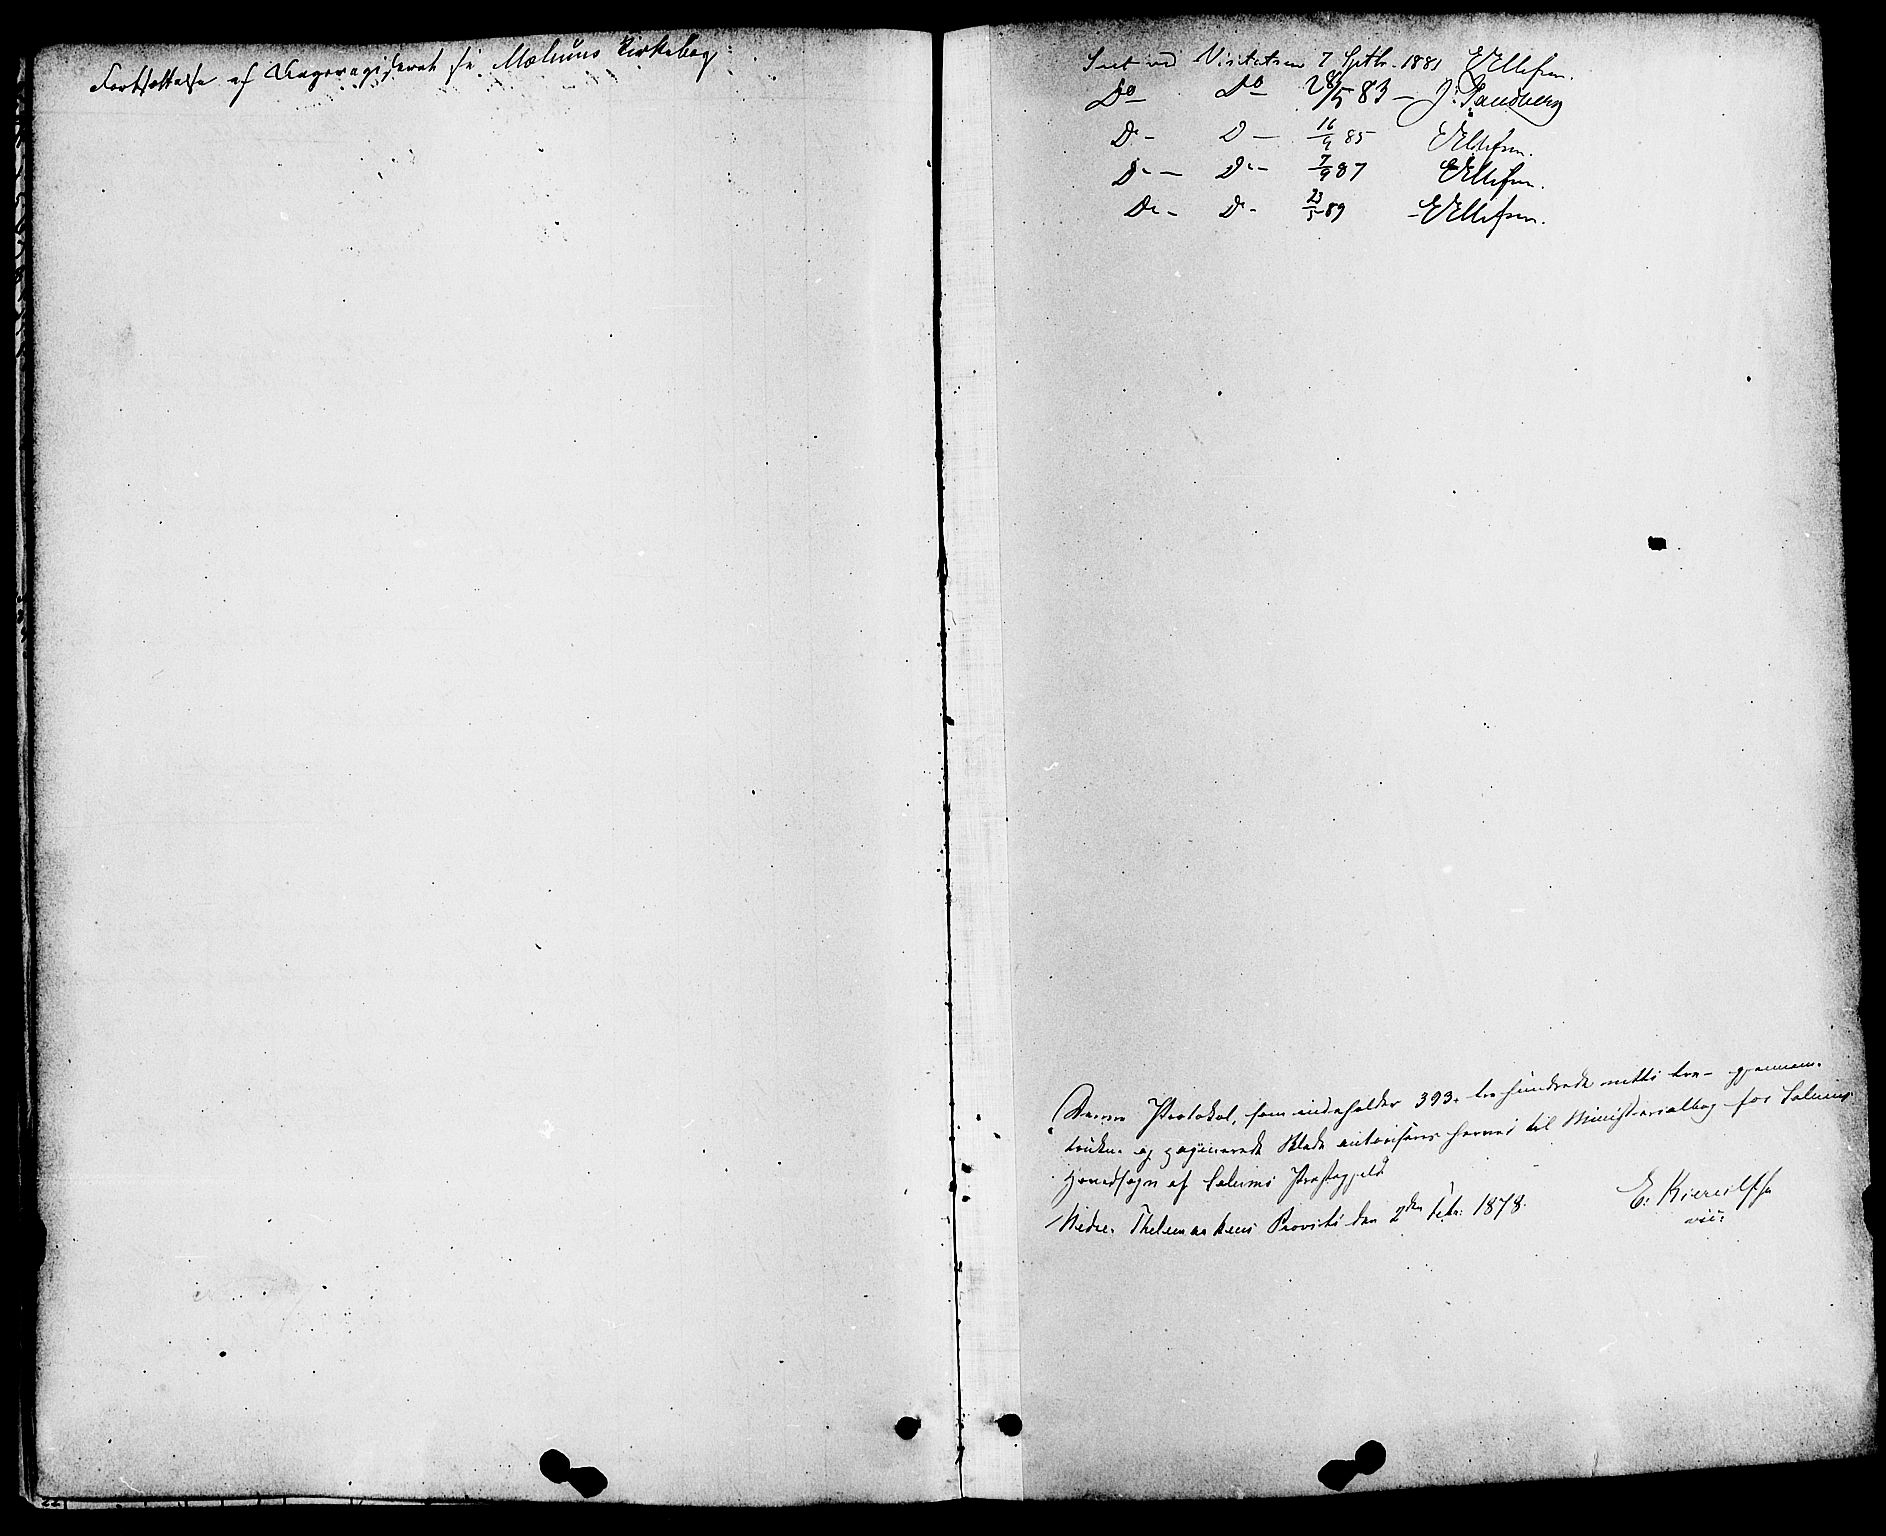 Fortsættelse af Dagsregisteret fra Mælums Kirkebog
Seet ved Visitatsen 7 Septbr. 1881 E Ellefsen.
Do Do 28/5 83 – J. Sandberg
Do – D – 16/9 85 E Ellefsen.
Do – Do – 7/9 87 E Ellefsen.
Do – Do – 23/5 89 – E Ellefsen.
Denne Protokol, som indeholder 393. tre hundrede nitti tre – gjennem-
trukne og paginerede Blade autoriseres herved til Ministerialbog for Solums
Hovedsogn af Solums Præstegjeld
Nedre Thelemarkens Provsti den 2den Febr. 1878.
E. Kierulf